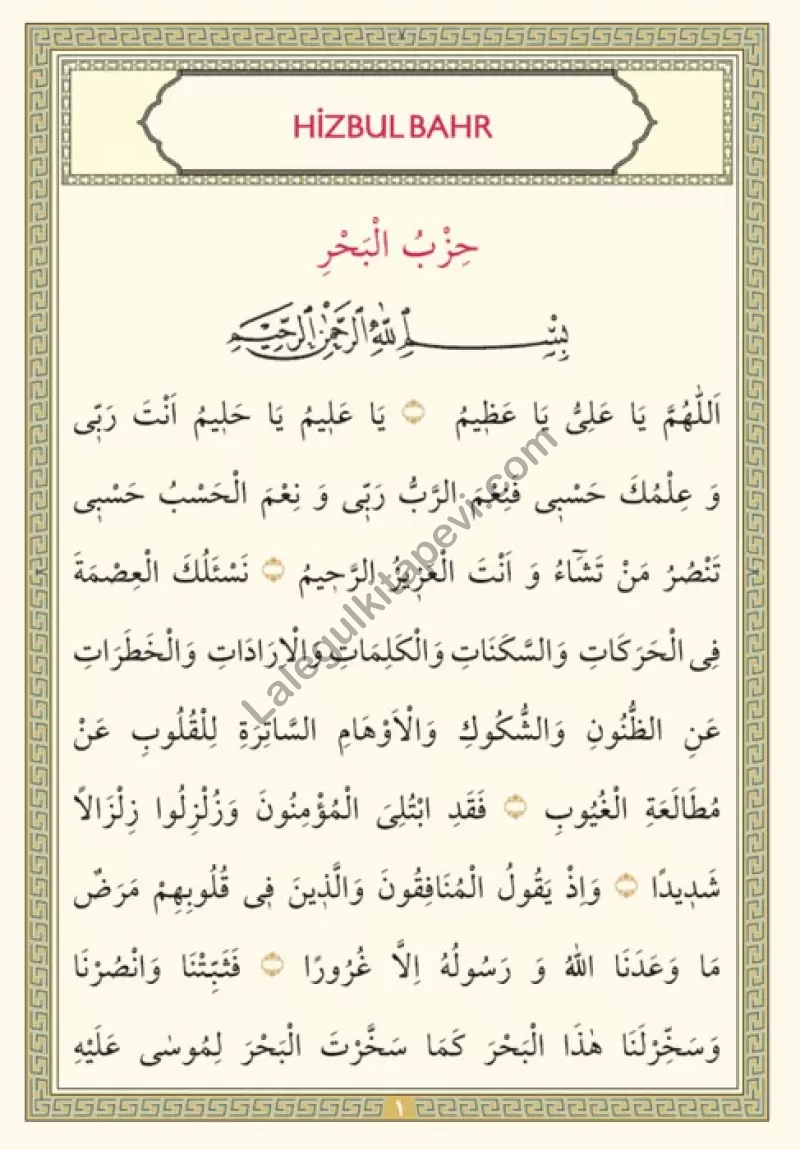 HİZBUL BAHR
حِزْبُ الْبَحْرِ
بِسْمِ اللّٰهِ الرَّحْمٰنِ الرَّحِيمِ
اَللّٰهُمَّ يَا عَلِىُّ يَا عَظ۪يمُ ۝ يَا عَل۪يمُ يَا حَل۪يمُ اَنْتَ رَبّ۪ى
وَ عِلْمُكَ حَسْب۪ى فَنِعْمَ الرَّبُّ رَبّ۪ى وَ نِعْمَ الْحَسْبُ حَسْب۪ى
تَنْصُرُ مَنْ تَشَٓاءُ وَ اَنْتَ الْعَز۪يزُ الرَّح۪يمُ ۝ نَسْئَلُكَ الْعِصْمَةَ
فِى الْحَرَكَاتِ وَالسَّكَنَاتِ وَالْكَلِمَاتِ وَالْاِرَادَاتِ وَالْخَطَرَاتِ
عَنِ الظُّنُونِ وَالشُّكُوكِ وَالْاَوْهَامِ السَّاتِرَةِ لِلْقُلُوبِ عَنْ
مُطَالَعَةِ الْغُيُوبِ ۝ فَقَدِ ابْتُلِىَ الْمُؤْمِنُونَ وَزُلْزِلُوا زِلْزَالًا
شَد۪يدًا ۝ وَاِذْ يَقُولُ الْمُنَافِقُونَ وَالَّذ۪ينَ ف۪ى قُلُوبِهِمْ مَرَضٌ
مَا وَعَدَنَا اللهُ وَ رَسُولُهُ اِلَّا غُرُورًا ۝ فَثَبِّتْنَا وَانْصُرْنَا
وَسَخِّرْلَنَا هٰذَا الْبَحْرَ كَمَا سَخَّرْتَ الْبَحْرَ لِمُوسٰى عَلَيْهِ
١
Lalegulkitapevi.com